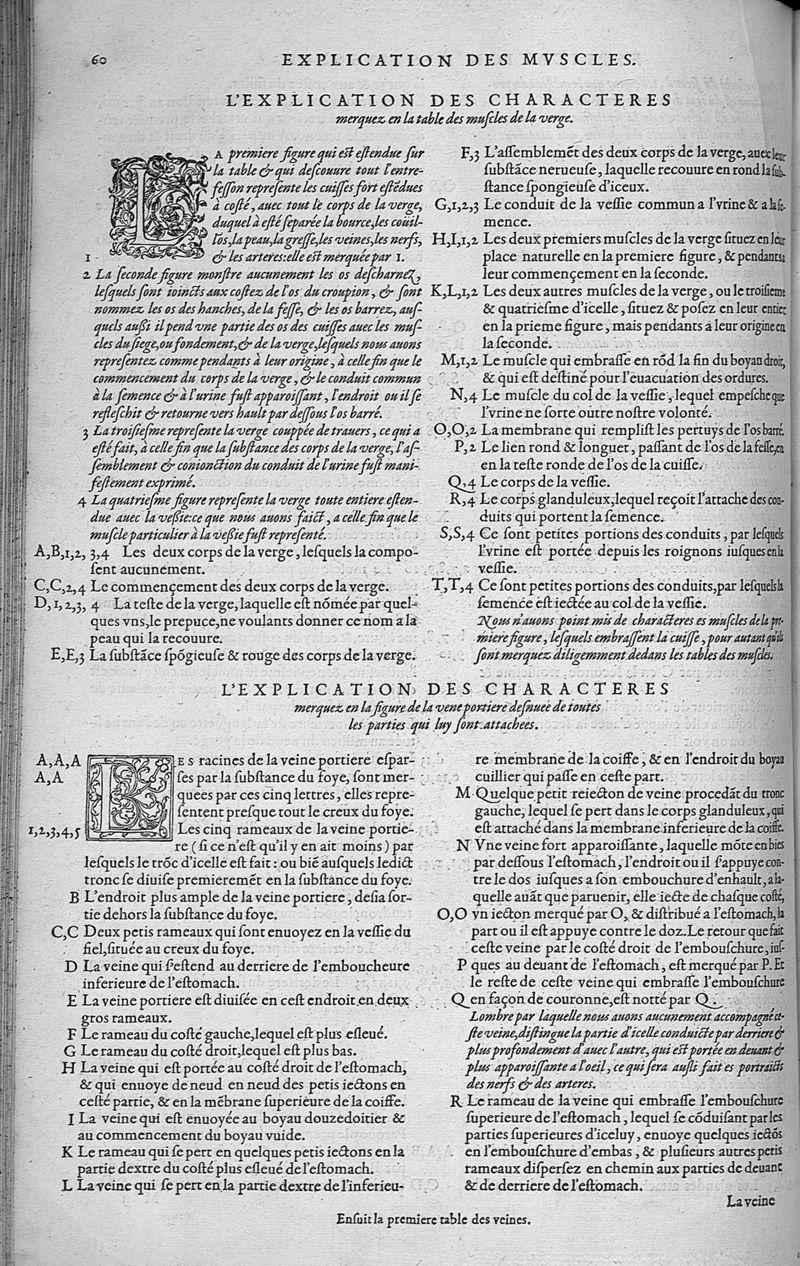 60
EXPLICATION DES MVSCLES.
L'EXPLICATION DES CHARACTERES
merquez en la table des muſcles de la verge.
LA premiere figure qui est eſtendue ſur
la table & qui deſcouure tout l'entre-
feſſon repreſente les cuiſſes fort eſtēdues
à coſté, auec tout le corps de la verge,
duquel à eſté ſeparée la bource, les coüil-
lōs, la peau, la greſſe, les veines, les nerfs,
1 & les arteres: elle est merquée par 1.
2 La ſeconde figure monſtre aucunement les os deſcharnez,
leſquels ſont ioincts aux coſtez de l'os du croupion, & ſont
nommez les os des hanches, de la feſſe, & les os barrez, auſ-
quels außi il pend vne partie des os des cuiſſes auec les muſ-
cles du ſiege, ou fondement, & de la verge, leſquels nous auons
repreſentez comme pendants à leur origine, à celle fin que le
commencement du corps de la verge, & le conduit commun
à la ſemence & à l'urine fuſt apparoiſſant, l'endroit ou il ſe
refleſchit & retourne vers hault par deſſous l'os barré.
3 La troiſieſme repreſente la verge couppée de trauers, ce qui a
eſté fait, à celle fin que la ſubſtance des corps de la verge, l'aſ-
ſemblement & conionction du conduit de l'urine fuſt mani-
feſtement exprimé.
4 La quatrieſme figure repreſente la verge toute entiere eſten-
due auec la veßie: ce que nous auons faict, a celle fin que le
muſcle particulier à la veßie fuſt repreſenté.
A,B,1,2, 3,4 Les deux corps de la verge, leſquels la compo-
ſent aucunement.
C,C,2,4 Le commençement des deux corps de la verge.
D,1,2,3, 4 La teſte de la verge, laquelle eſt nōmée par quel-
ques vns, le prepuce, ne voulants donner ce nom a la
peau qui la recouure.
E,E,3 La ſubſtāce ſpōgieuſe & rouge des corps de la verge.
F,3 L'aſſemblemēt des deux corps de la verge, auec leur
ſubſtāce nerueuſe, laquelle recouure en rond la ſub-
ſtance ſpongieuſe d'iceux.
G,1,2,3 Le conduit de la veſſie commun a l'vrine & a la ſe-
mence.
H,I,1,2 Les deux premiers muſcles de la verge ſituez en leur
place naturelle en la premiere figure, & pendants a
leur commençement en la ſeconde.
K,L,1,2 Les deux autres muſcles de la verge, ou le troiſieme
& quatrieſme d'icelle, ſituez & poſez en leur entier
en la prieme figure, mais pendants a leur origine en
la ſeconde.
M,1,2 Le muſcle qui embraſſe en rōd la fin du boyau droit,
& qui eſt deſtiné pour l'euacuation des ordures.
N,4 Le muſcle du col de la veſſie, lequel empeſche que
l'vrine ne ſorte outre noſtre volonté.
O,O,2 La membrane qui rempliſt les pertuys de l'os barré.
P,2 Le lien rond & longuet, paſſant de l'os de la feſſe, en
en la teſte ronde de l'os de la cuiſſe.
Q,4 Le corps de la veſſie.
R,4 Le corps glanduleux, lequel reçoit l'attache des con-
duits qui portent la ſemence.
S,S,4 Ce ſont petites portions des conduits, par leſquels
l'vrine eſt portée depuis les roignons iuſques en la
veſſie.
T,T,4 Ce ſont petites portions des conduits, par leſquels la
ſemence eſt iectée au col de la veſſie.
Nous n'auons point mis de characteres es muſcles de la pre-
miere figure, leſquels embraſſent la cuiſſe, pour autant qu'ils
ſont merquez diligemment dedans les tables des muſcles.
L'EXPLICATION DES CHARACTERES
merquez en la figure de la vene portiere deſnuee de toutes
les parties qui luy ſont attachees.
A,A,A LES racines de la veine portiere eſpar-
A,A ſes par la ſubſtance du foye, ſont mer-
quées par ces cinq lettres, elles repre-
ſentent preſque tout le creux du foye.
1,2,3,4,5 Les cinq rameaux de la veine portie-
re (ſi ce n'eſt qu'il y en ait moins) par
leſquels le trōc d'icelle eſt fait: ou biē auſquels ledict
tronc ſe diuiſe premieremēt en la ſubſtance du foye.
B L'endroit plus ample de la veine portiere, deſia ſor-
tie dehors la ſubſtance du foye.
C,C Deux petis rameaux qui ſont enuoyez en la veſſie du
fiel, ſituée au creux du foye.
D La veine qui ſ'eſtend au derriere de l'emboucheure
inferieure de l'eſtomach.
E La veine portiere eſt diuiſée en ceſt endroit en deux
gros rameaux.
F Le rameau du coſté gauche, lequel eſt plus eſleué.
G Le rameau du coſté droit, lequel eſt plus bas.
H La veine qui eſt portée au coſté droit de l'eſtomach,
& qui enuoye de neud en neud des petis iectons en
ceſté partie, & en la mēbrane ſuperieure de la coiffe.
I La veine qui eſt enuoyée au boyau douzedoitier &
au commencement du boyau vuide.
K Le rameau qui ſe pert en quelques petis iectons en la
partie dextre du coſté plus eſleué de l'eſtomach.
L La veine qui ſe pert en la partie dextre de l'inferieu-
re membrane de la coiffe, & en l'endroit du boyau
cuillier qui paſſe en ceſte part.
M Quelque petit reiecton de veine procedāt du tronc
gauche, lequel ſe pert dans le corps glanduleux, qui
eſt attaché dans la membrane inferieure de la coiffe.
N Vne veine fort apparoiſſante, laquelle mōte en bies
par deſſous l'eſtomach, l'endroit ou il ſ'appuye con-
tre le dos iuſques a ſon embouchure d'enhault, a la-
quelle auāt que paruenir, elle iecte de chaſque coſté,
O,O vn iecton merqué par O, & diſtribué a l'eſtomach, la
part ou il eſt appuye contre le doz. Le retour que fait
ceſte veine par le coſté droit de l'embouſchure, iuſ-
P ques au deuant de l'eſtomach, eſt merqué par P. Et
le reſte de ceſte veine qui embraſſe l'embouſchure
Q en façon de couronne, eſt notté par Q.
Lombre par laquelle nous auons aucunement accompagné ce-
ſte veine, diſtingue la partie d'icelle conduicte par derriere &
plus profondement d'auec l'autre, qui eſt portée en deuant &
plus apparoiſſante a l'oeil, ce qui ſera auſſi fait es portraicts
des nerfs & des arteres.
R Le rameau de la veine qui embraſſe l'embouſchure
ſuperieure de l'eſtomach, lequel ſe cōduiſant par les
parties ſuperieures d'iceluy, enuoye quelques iectōs
en l'embouſchure d'embas, & pluſieurs autres petis
rameaux diſperſez en chemin aux parties de deuant
& de derriere de l'eſtomach.
La veine
Enſuit la premiere table des veines.